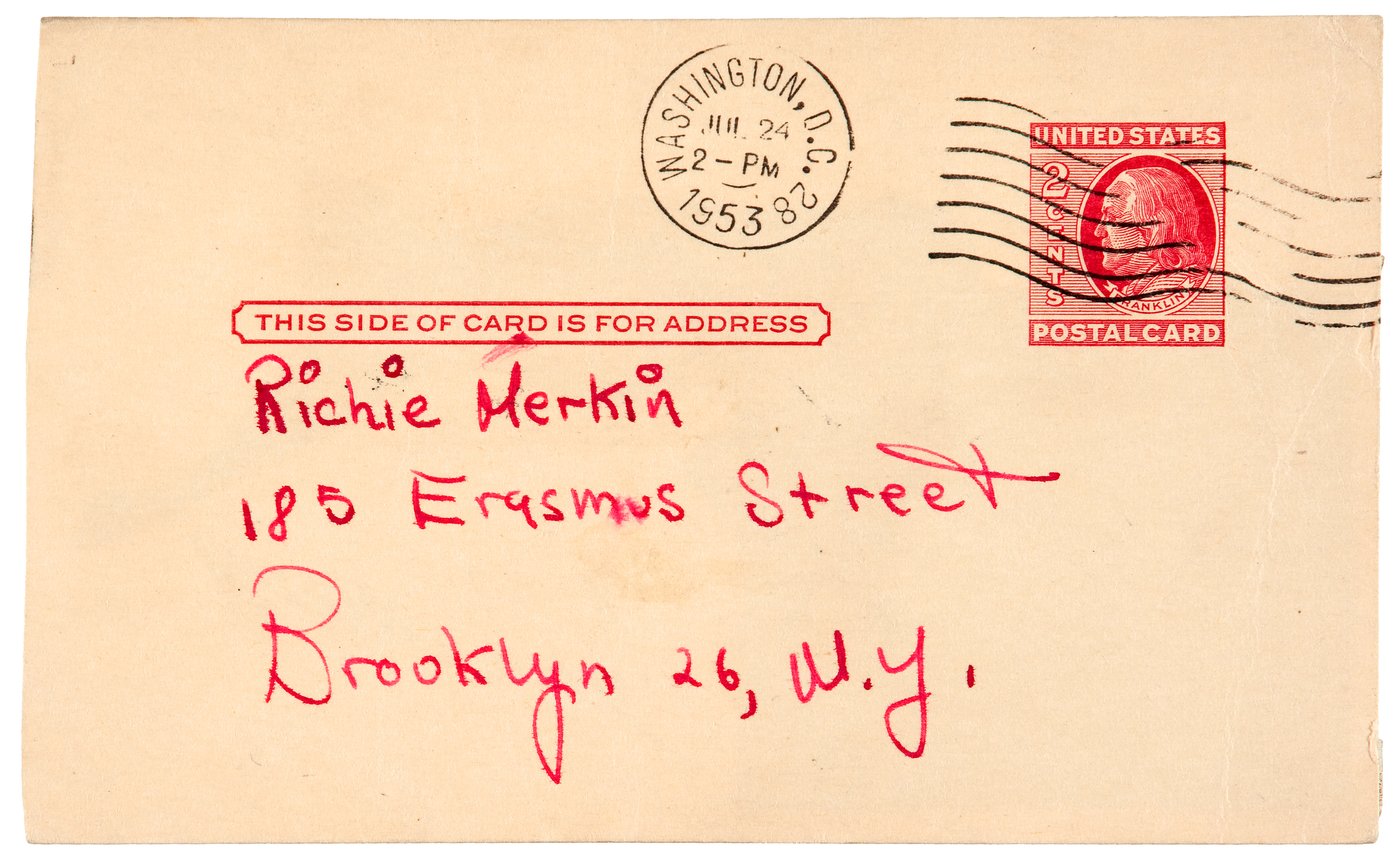 WASHINGTON, D.C. 28
JUL 24
2-PM
1953
UNITED STATES
2 CENTS
FRANKLIN
POSTAL CARD
THIS SIDE OF CARD IS FOR ADDRESS
Richie Merkin
185 Erasmus Street
Brooklyn 26, N.Y.